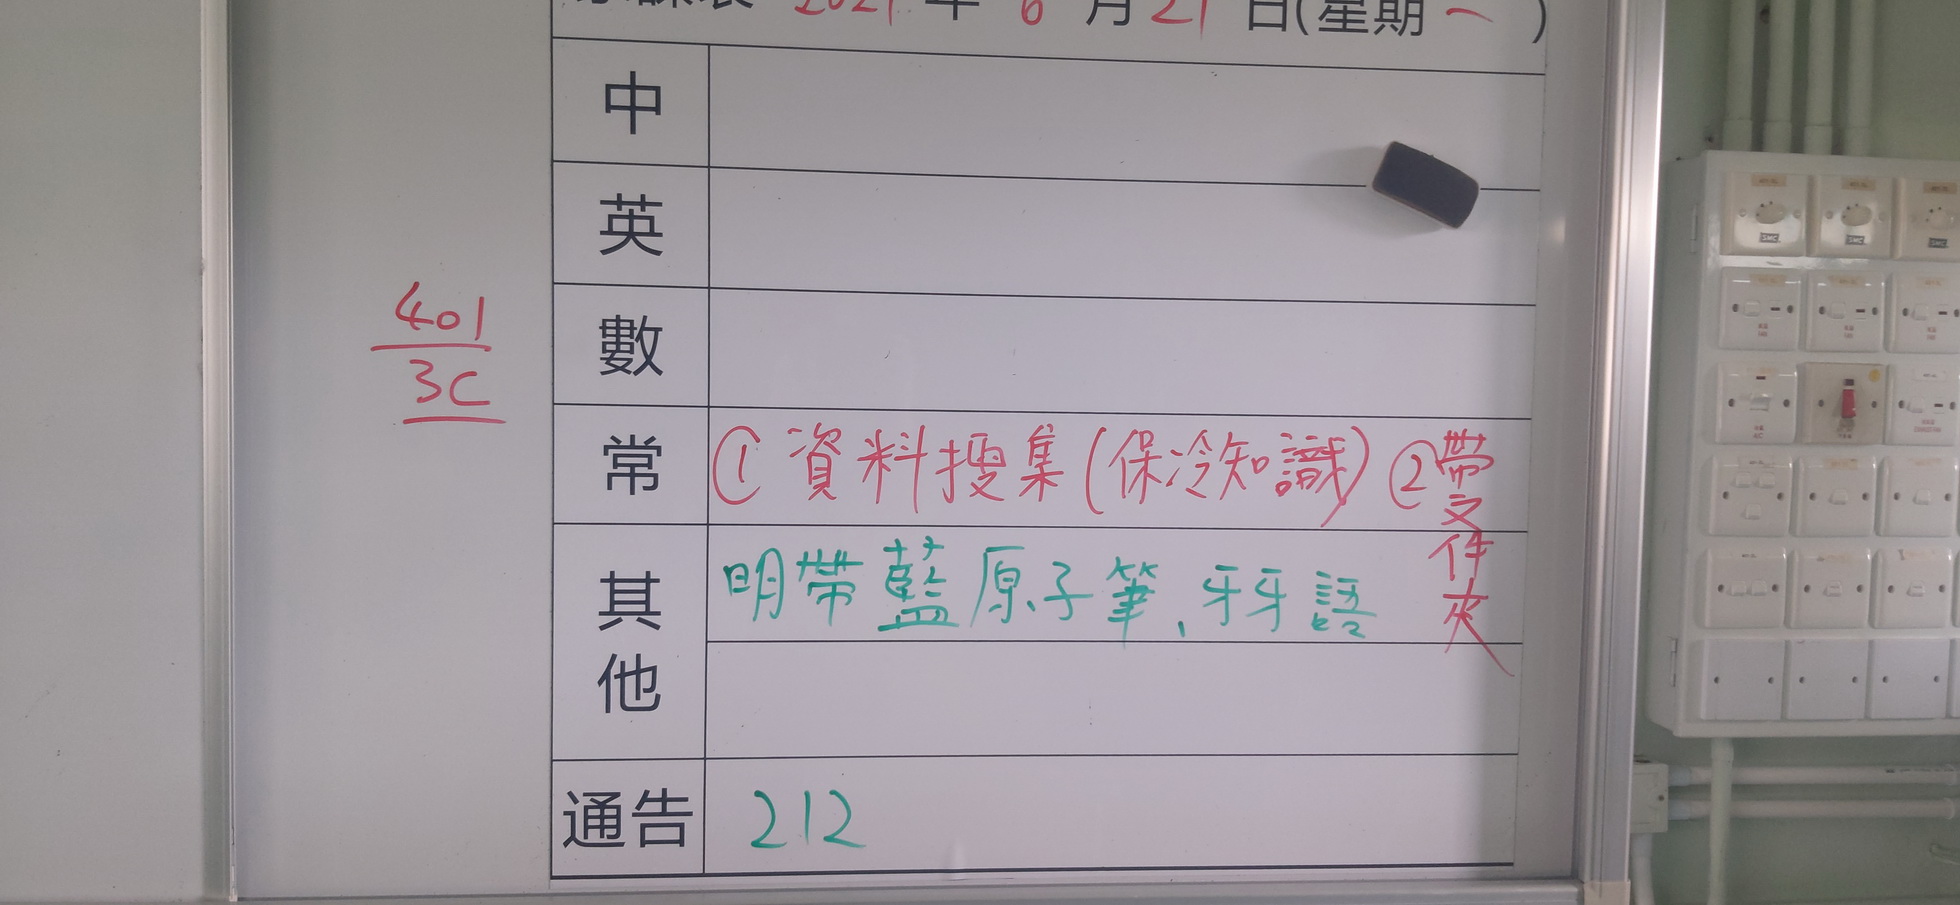 家課表 2021 年 6 月 21 日(星期一)
中
英
數
401
3C
常 ① 資料搜集(保冷知識) ②帶文件夾
其他 明帶藍原子筆、牙牙語
通告 212